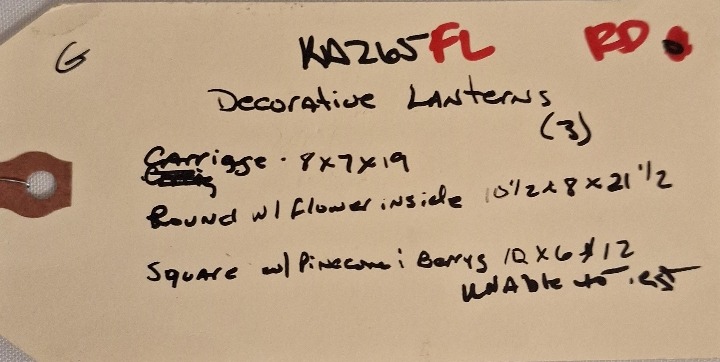 G KA265FL RD
Decorative Lanterns
(3)
Carriage - 8x7x19
Round w/ flower inside 10 1/2 x 8 x 21 1/2
Square w/ Pinecone & Berrys 12 x 6 x 12
unable to test